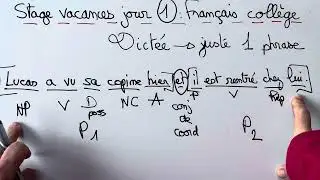 Stage vacances jour 1 : Français collège
Dictée → juste 1 phrase
Lucas a vu sa copine hier et il est rentré chez lui.
NP V D NC A conj P V Prép
poss de
coord
P1 P2